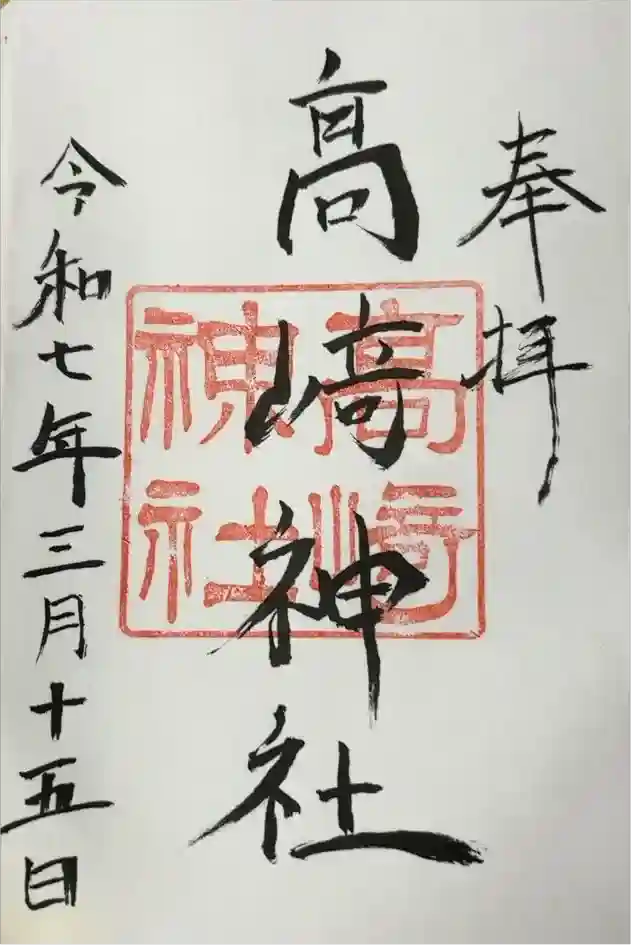 奉拝
高﨑神社
高﨑神社
令和七年三月十五日